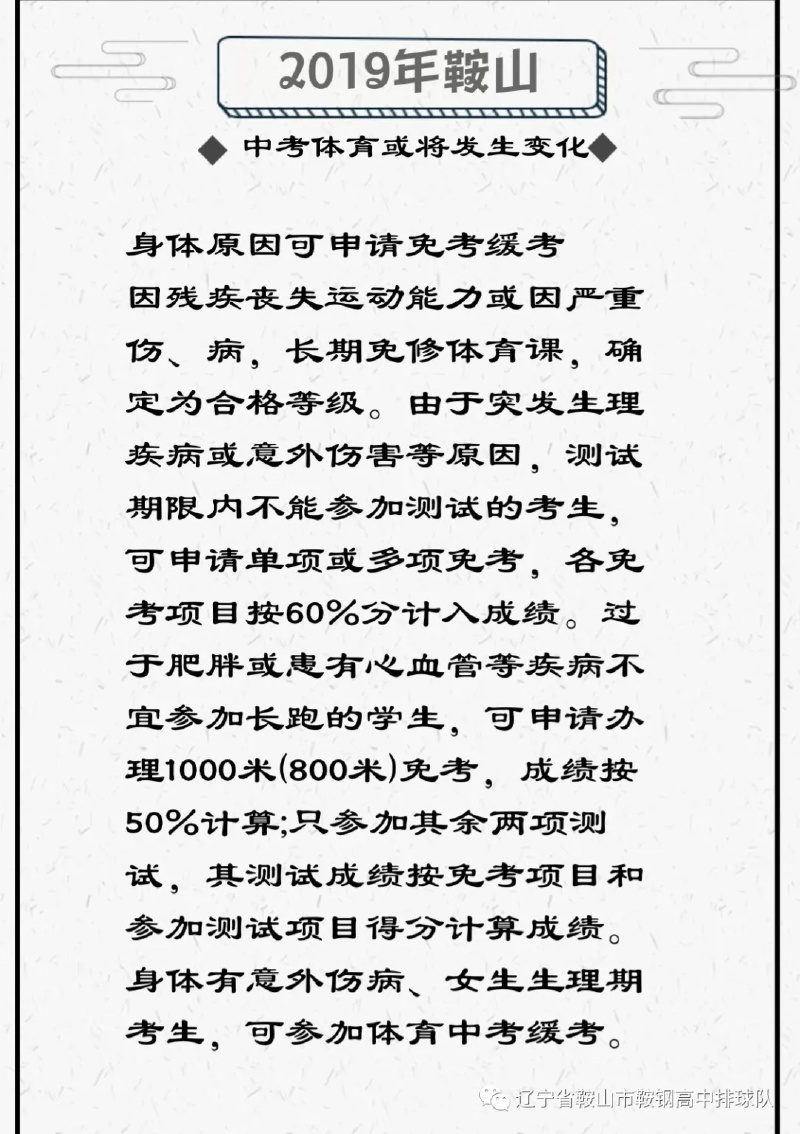 2019年鞍山
中考体育或将发生变化
身体原因可申请免考缓考
因残疾丧失运动能力或因严重
伤、病，长期免修体育课，确
定为合格等级。由于突发生理
疾病或意外伤害等原因，测试
期限内不能参加测试的考生，
可申请单项或多项免考，各免
考项目按60%分计入成绩。过
于肥胖或患有心血管等疾病不
宜参加长跑的学生，可申请办
理1000米(800米)免考，成绩按
50%计算;只参加其余两项测
试，其测试成绩按免考项目和
参加测试项目得分计算成绩。
身体有意外伤病、女生生理期
考生，可参加体育中考缓考。
辽宁省鞍山市鞍钢高中排球队